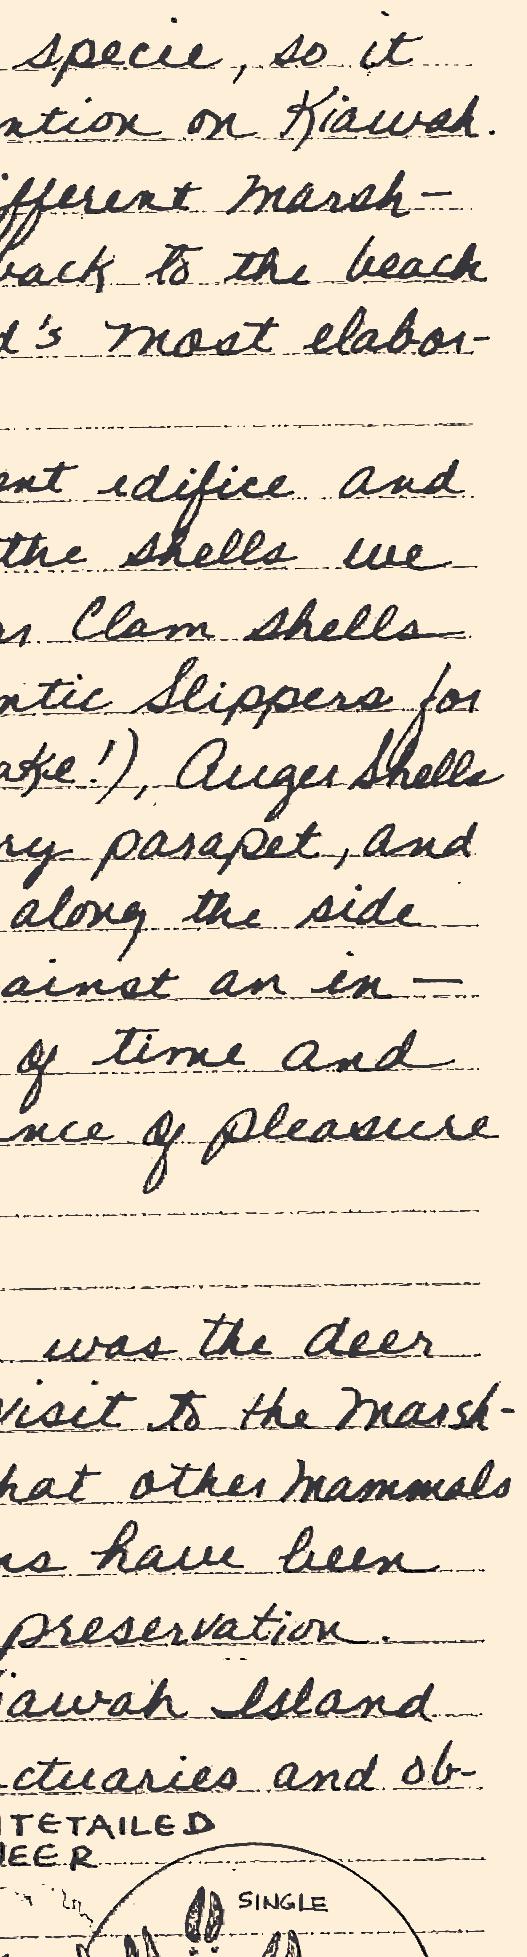 specie, so it
ntion on Kiawah.
ifferent Marsh-
back to the beach
d's most elabor-
ent edifice and
the shells we
Clam shells
ntic Slippers for
ake!), Auger Shells
ry parapet, and
along the side
ainst an in-
of time and
nce of pleasure
was the deer
visit to the Marsh-
hat other Mammals
ns have been
preservation.
iawah Island
ctuaries and ob-
ITETAILED
DEER
SINGLE